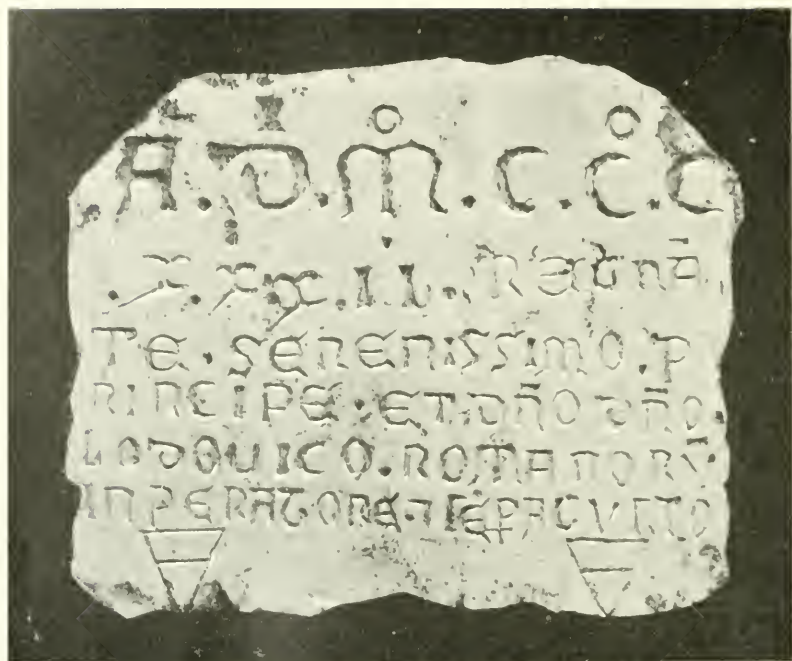 Ā.D.Mͦ.C.Cͦ.C
.X.XX.II.REGNĀ
TE.SERENISSIMO.P
RINCIPE.ET.DÑO DÑO
LODOUICO.ROMANORŪ
INPERATORE.